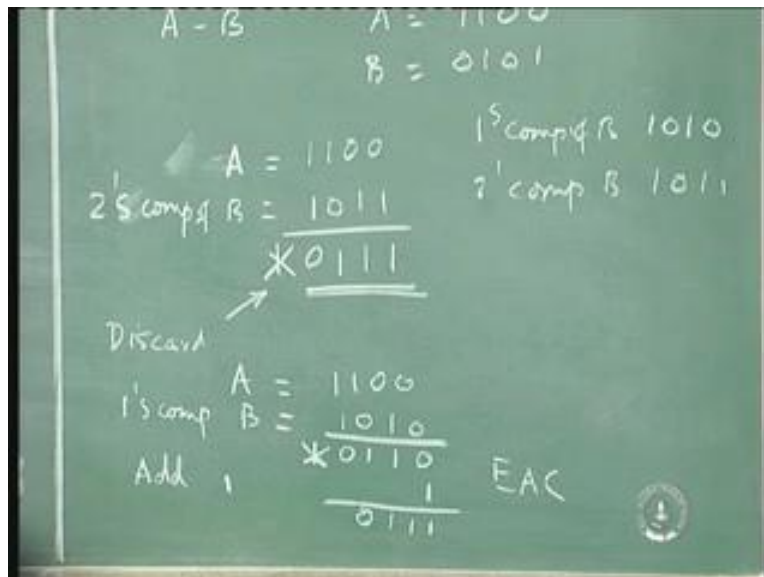 A - B A = 1100
B = 0101
1's comp of B 1010
A = 1100
2's comp B 1011
2's comp of B = 1011
0111
Discard
A = 1100
1's comp B = 1010
0110
Add 1 1 EAC
0111